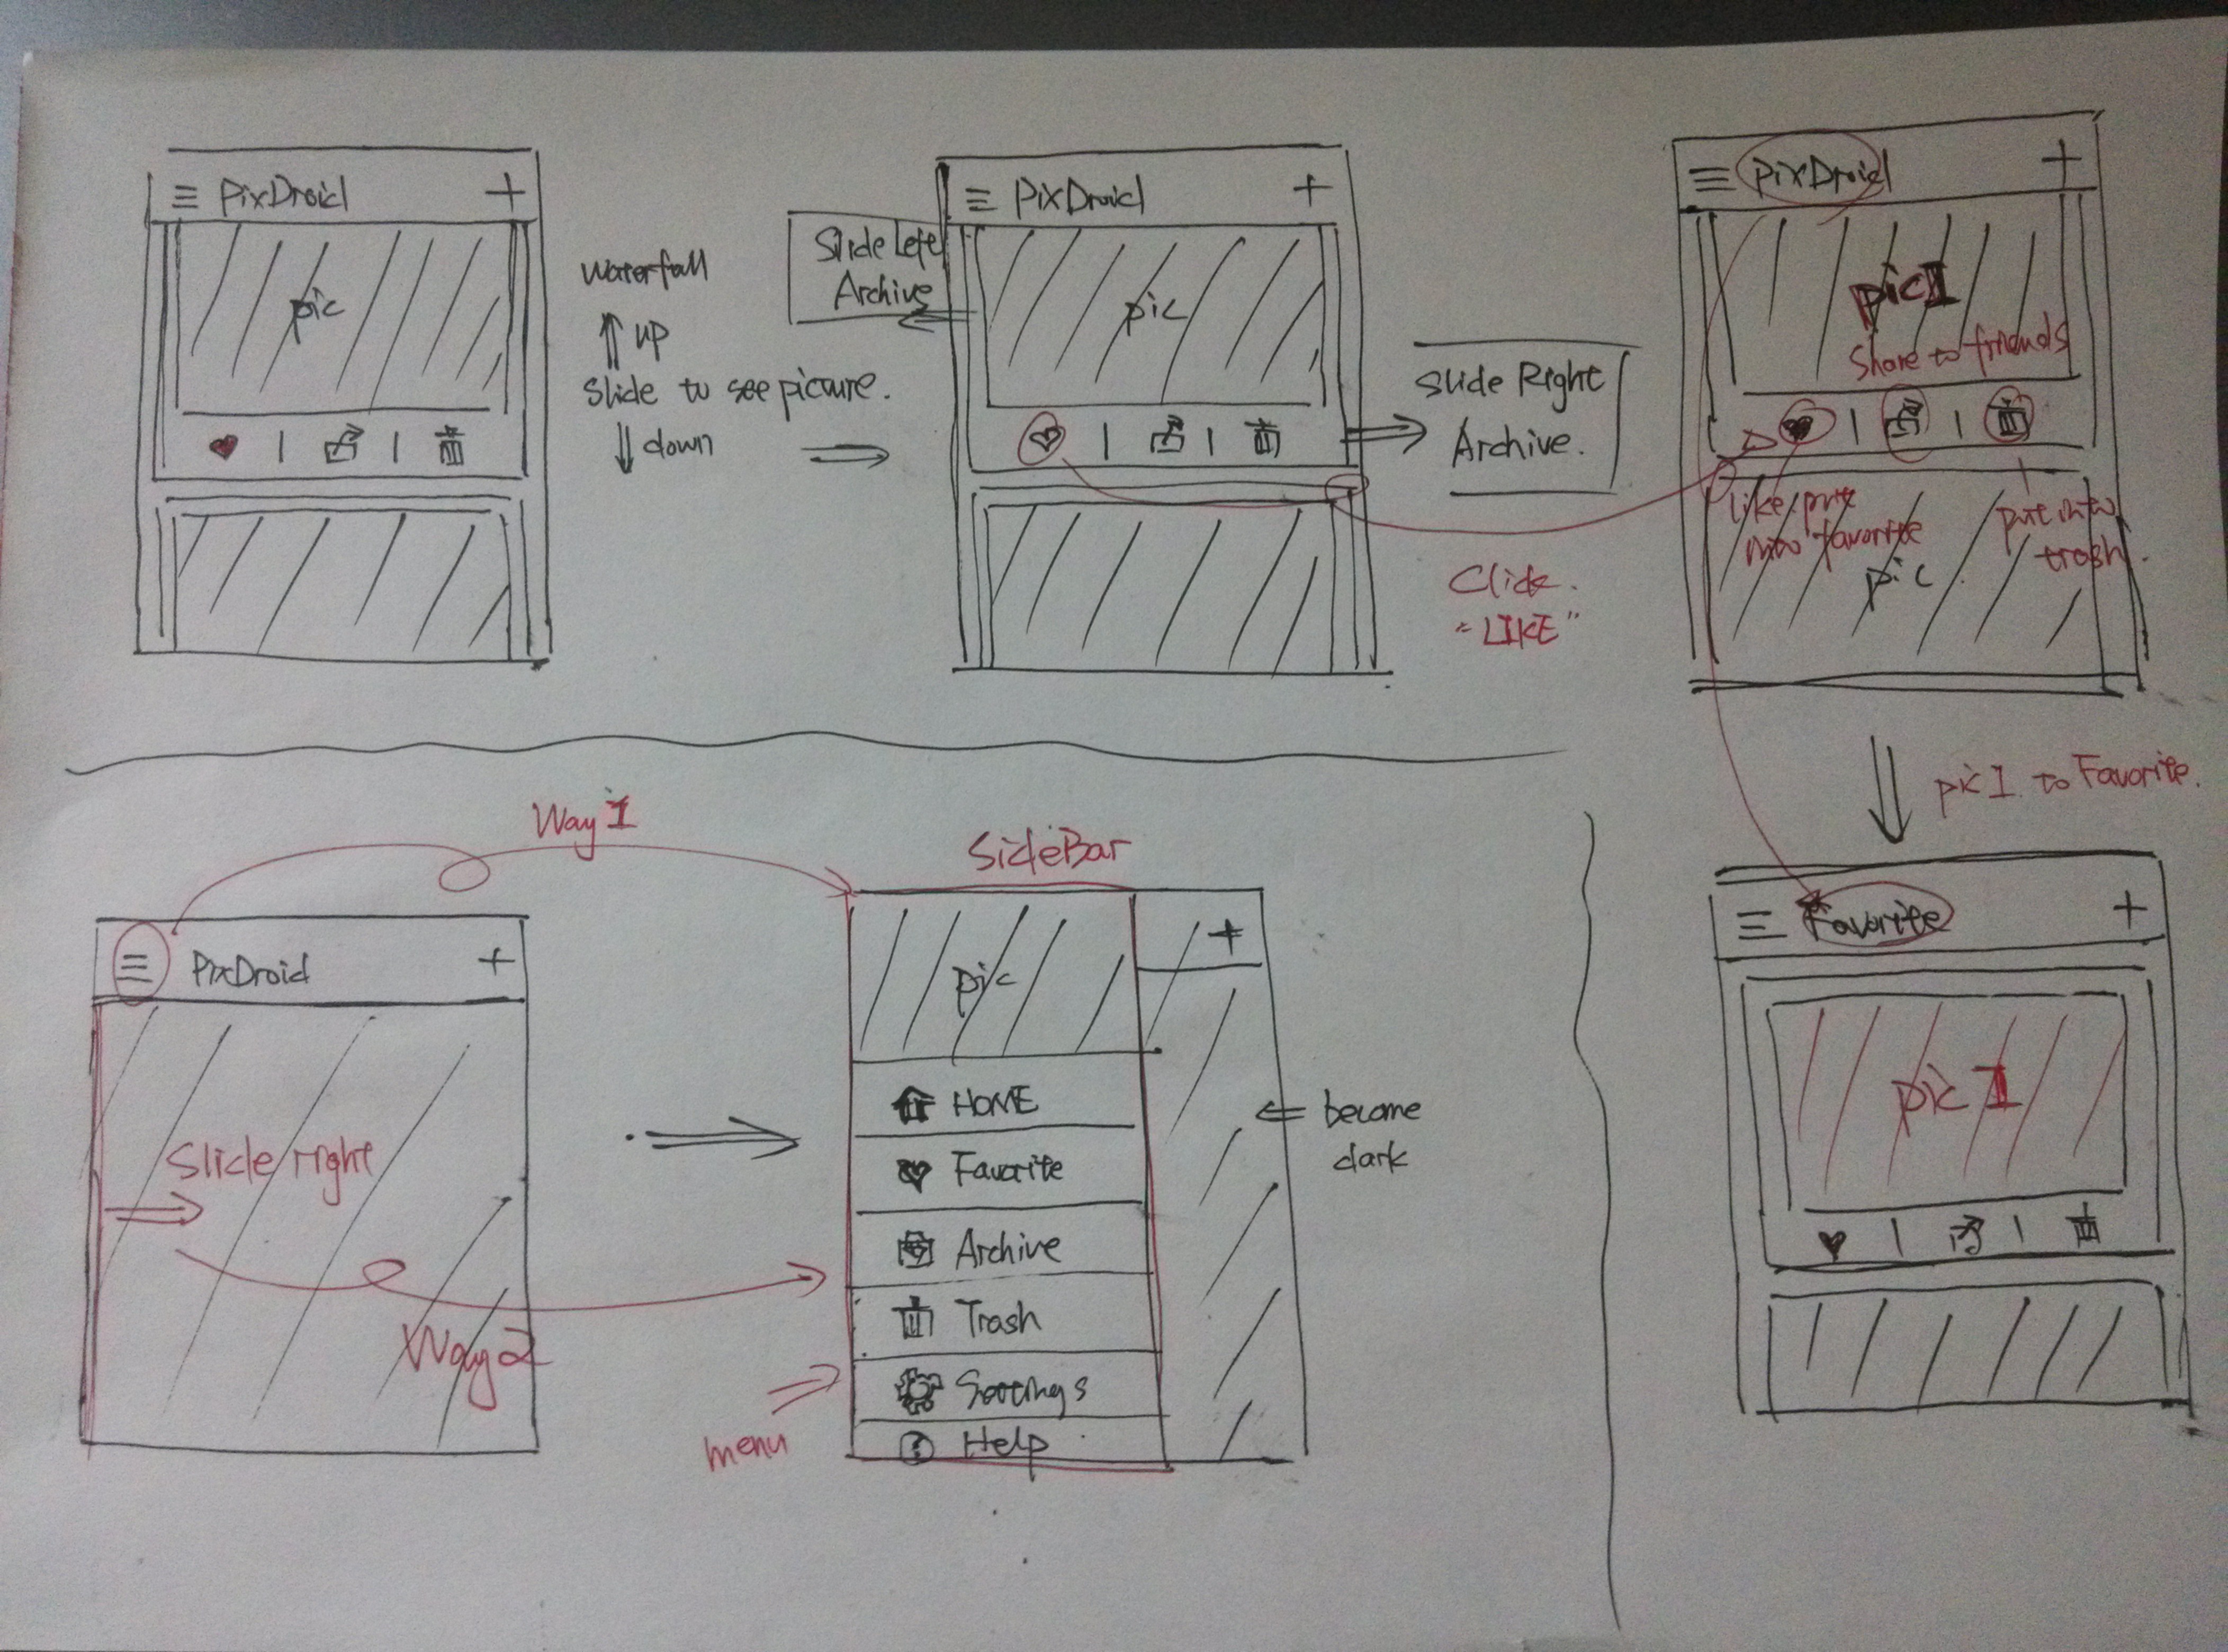 PixDroid +
pic
waterfall
up
Slide to see picture.
down
Slide Left
Archive
PixDroid +
pic
Slide Right
Archive.
Click
"LIKE"
PixDroid +
pic 1
Share to friends
like put
into favorite
put into
trash.
pic
pic 1 to Favorite.
Favorite +
pic 1
Way 1
PixDroid +
Slide right
Way 2
SideBar
pic
+
HOME
Favorite
Archive
Trash
Settings
Help
menu
become
dark